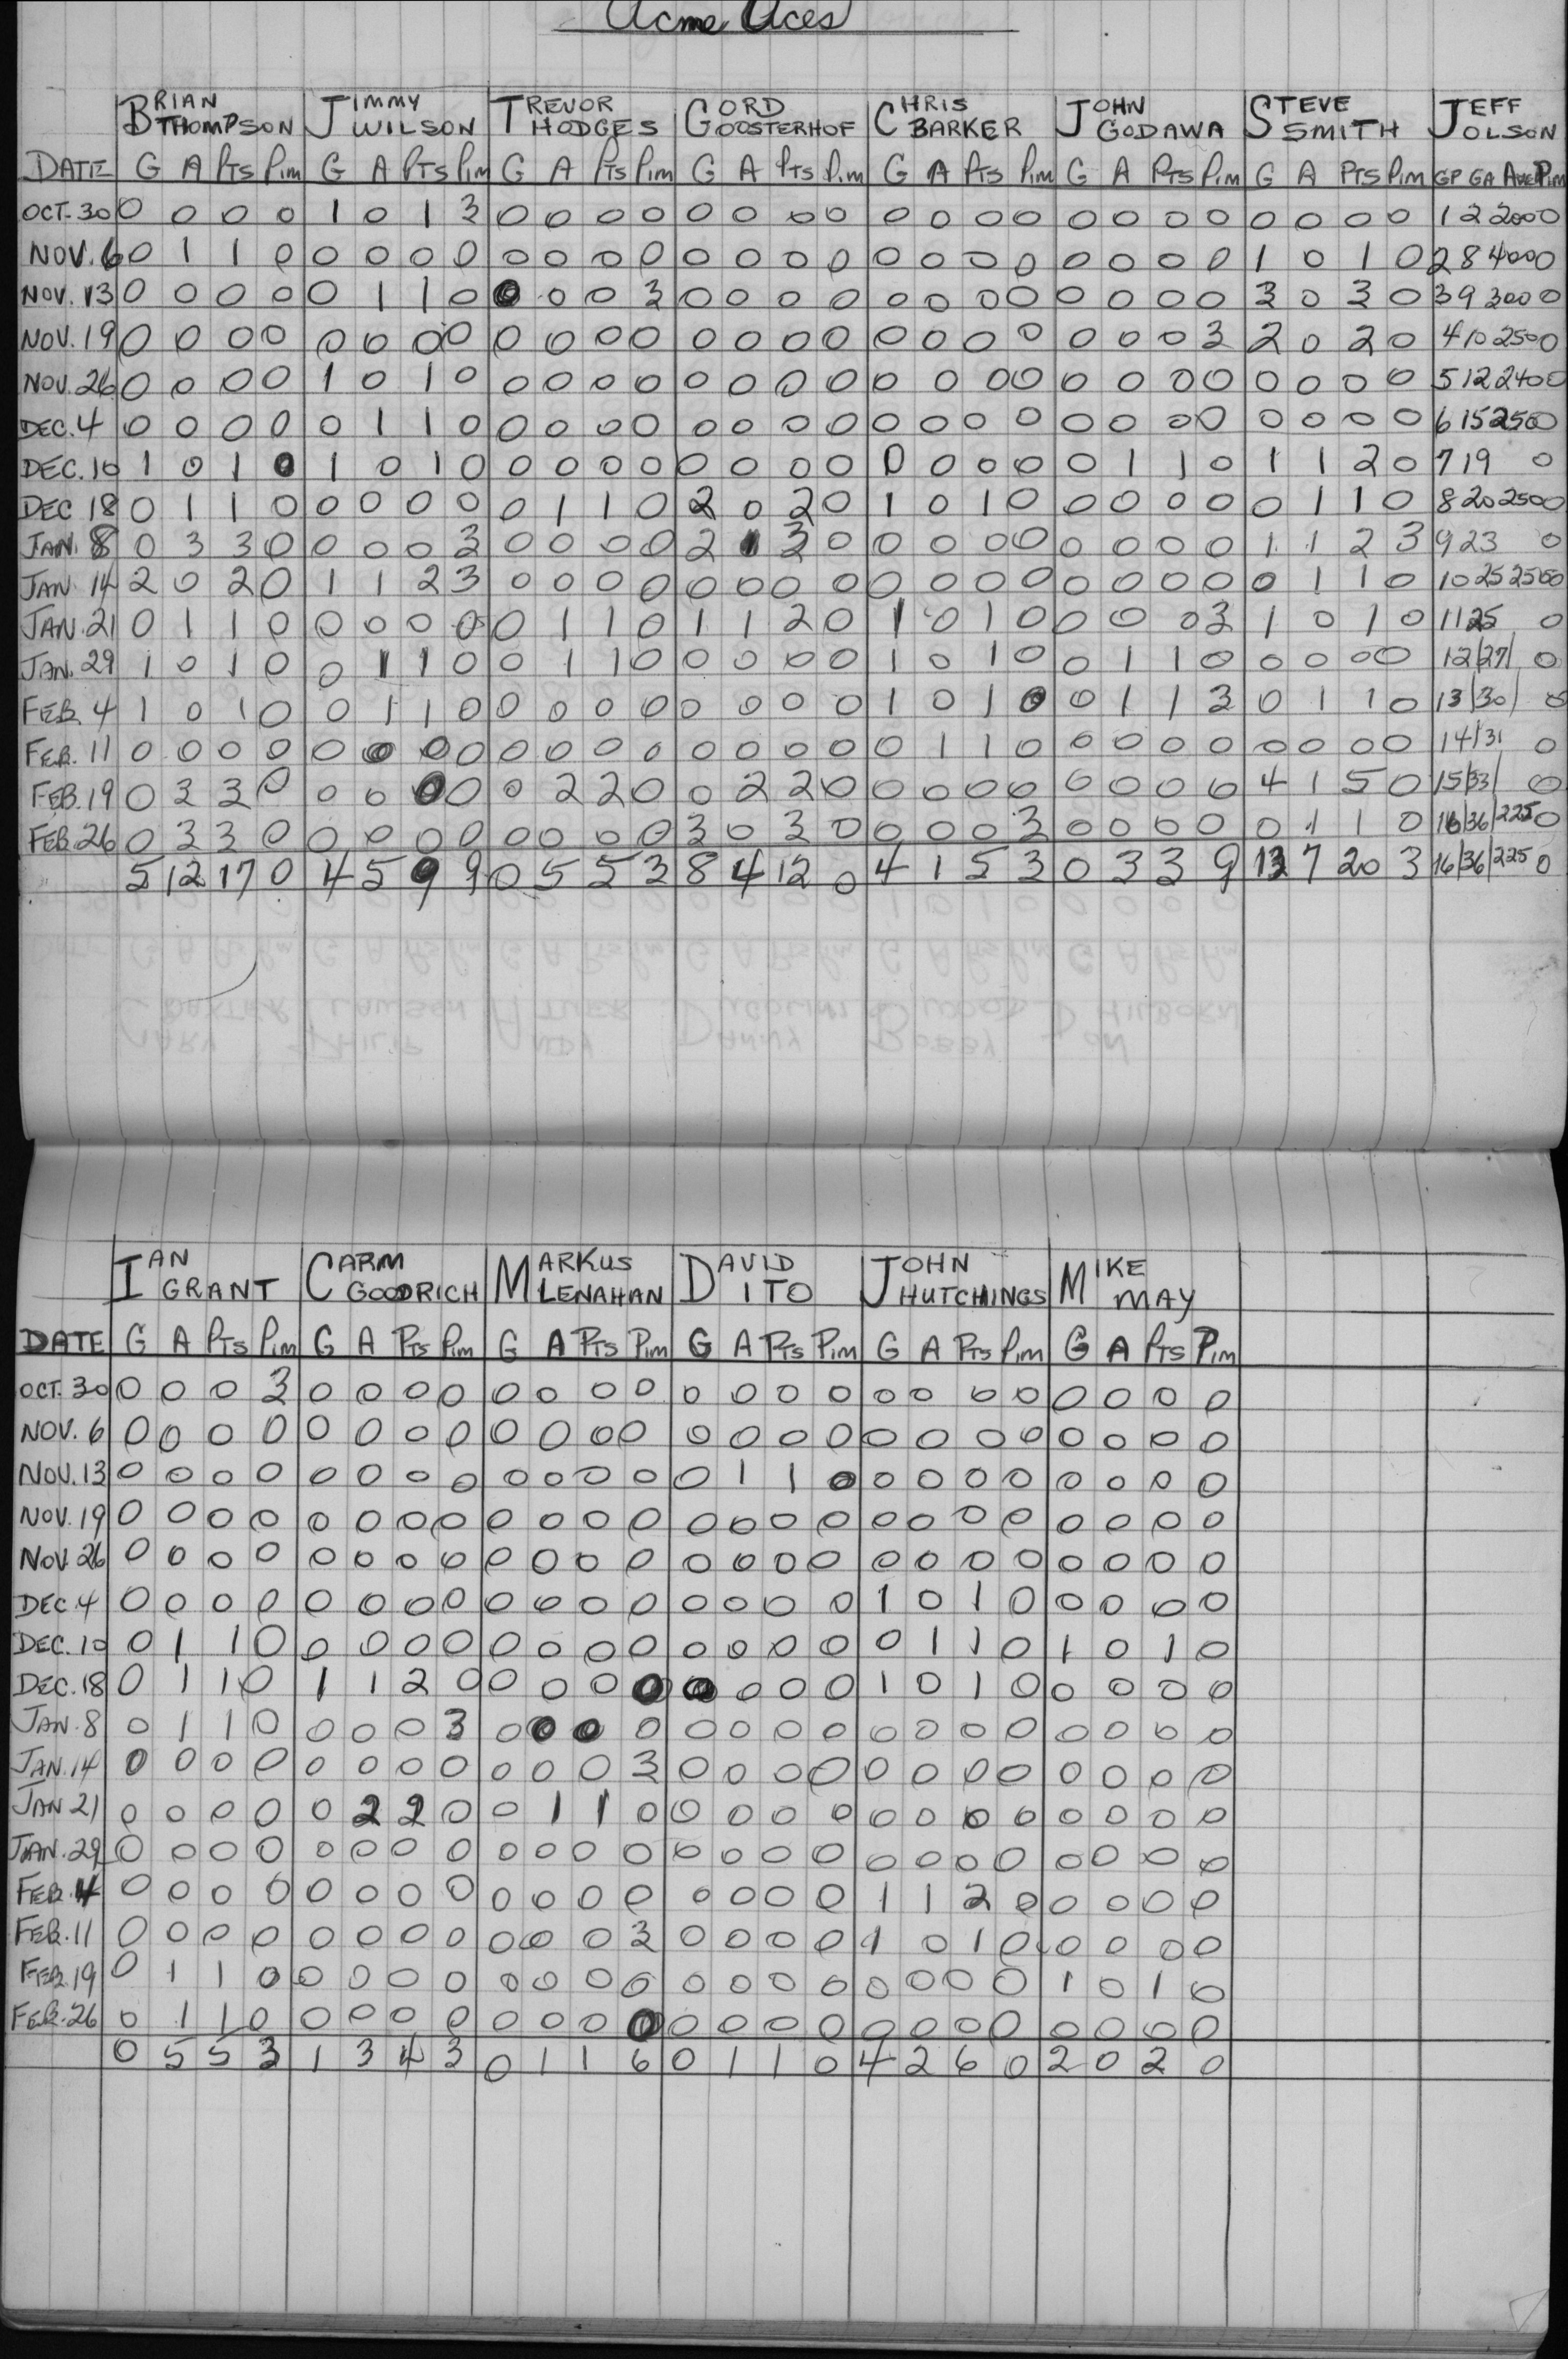 Acme Aces
BRIAN THOMPSON JIMMY WILSON TREVOR HODGES GORD OOSTERHOF CHRIS BARKER JOHN GODAWA STEVE SMITH JEFF OLSON
DATE G A Pts Pim G A Pts Pim G A Pts Pim G A Pts Pim G A Pts Pim G A Pts Pim G A Pts Pim GP GA Ave Pim
OCT. 30 0 0 0 0 1 0 1 3 0 0 0 0 0 0 0 0 0 0 0 0 0 0 0 0 0 0 0 0 1 2 200 0
NOV. 6 0 1 1 0 0 0 0 0 0 0 0 0 0 0 0 0 0 0 0 0 0 0 0 0 1 0 1 0 2 8 400 0
NOV. 13 0 0 0 0 0 1 1 0 0 0 0 3 0 0 0 0 0 0 0 0 0 0 0 0 3 0 3 0 3 9 300 0
NOV. 19 0 0 0 0 0 0 0 0 0 0 0 0 0 0 0 0 0 0 0 0 0 0 0 3 2 0 2 0 4 10 250 0
NOV. 26 0 0 0 0 1 0 1 0 0 0 0 0 0 0 0 0 0 0 0 0 0 0 0 0 0 0 0 0 5 12 240 0
DEC. 4 0 0 0 0 0 1 1 0 0 0 0 0 0 0 0 0 0 0 0 0 0 0 0 0 0 0 0 0 6 15 250 0
DEC. 10 1 0 1 0 1 0 1 0 0 0 0 0 0 0 0 0 0 0 0 0 0 1 1 0 1 1 2 0 7 19 0
DEC 18 0 1 1 0 0 0 0 0 0 1 1 0 2 0 2 0 1 0 1 0 0 0 0 0 0 1 1 0 8 20 250 0
JAN. 8 0 3 3 0 0 0 0 3 0 0 0 0 2 1 3 0 0 0 0 0 0 0 0 0 1 1 2 3 9 23 0
JAN. 14 2 0 2 0 1 1 2 3 0 0 0 0 0 0 0 0 0 0 0 0 0 0 0 0 0 1 1 0 10 25 250 0
JAN. 21 0 1 1 0 0 0 0 0 0 1 1 0 1 1 2 0 1 0 1 0 0 0 0 3 1 0 1 0 11 25 0
JAN. 29 1 0 1 0 0 1 1 0 0 1 1 0 0 0 0 0 1 0 1 0 0 1 1 0 0 0 0 0 12/27/ 0
FEB. 4 1 0 1 0 0 1 1 0 0 0 0 0 0 0 0 0 1 0 1 0 0 1 1 3 0 1 1 0 13/30/ 0
FEB. 11 0 0 0 0 0 0 0 0 0 0 0 0 0 0 0 0 0 1 1 0 0 0 0 0 0 0 0 0 14/31 0
FEB. 19 0 3 3 0 0 0 0 0 0 2 2 0 0 2 2 0 0 0 0 0 0 0 0 0 4 1 5 0 15/33/ 0
FEB. 26 0 3 3 0 0 0 0 0 0 0 0 0 3 0 3 0 0 0 0 3 0 0 0 0 0 1 1 0 16/36/225 0
5 12 17 0 4 5 9 9 0 5 5 3 8 4 12 0 4 1 5 3 0 3 3 9 13 7 20 3 16/36/225 0
IAN GRANT CARM GOODRICH MARKUS LENAHAN DAVID ITO JOHN HUTCHINGS MIKE MAY
DATE G A Pts Pim G A Pts Pim G A Pts Pim G A Pts Pim G A Pts Pim G A Pts Pim
OCT. 30 0 0 0 3 0 0 0 0 0 0 0 0 0 0 0 0 0 0 0 0 0 0 0 0
NOV. 6 0 0 0 0 0 0 0 0 0 0 0 0 0 0 0 0 0 0 0 0 0 0 0 0
NOV. 13 0 0 0 0 0 0 0 0 0 0 0 0 0 1 1 0 0 0 0 0 0 0 0 0
NOV. 19 0 0 0 0 0 0 0 0 0 0 0 0 0 0 0 0 0 0 0 0 0 0 0 0
NOV. 26 0 0 0 0 0 0 0 0 0 0 0 0 0 0 0 0 0 0 0 0 0 0 0 0
DEC. 4 0 0 0 0 0 0 0 0 0 0 0 0 0 0 0 0 1 0 1 0 0 0 0 0
DEC. 10 0 1 1 0 0 0 0 0 0 0 0 0 0 0 0 0 0 1 1 0 1 0 1 0
DEC. 18 0 1 1 0 1 1 2 0 0 0 0 0 0 0 0 0 1 0 1 0 0 0 0 0
JAN. 8 0 1 1 0 0 0 0 3 0 0 0 0 0 0 0 0 0 0 0 0 0 0 0 0
JAN. 14 0 0 0 0 0 0 0 0 0 0 0 3 0 0 0 0 0 0 0 0 0 0 0 0
JAN 21 0 0 0 0 0 2 2 0 0 1 1 0 0 0 0 0 0 0 0 0 0 0 0 0
JAN. 29 0 0 0 0 0 0 0 0 0 0 0 0 0 0 0 0 0 0 0 0 0 0 0 0
FEB. 4 0 0 0 0 0 0 0 0 0 0 0 0 0 0 0 0 1 1 2 0 0 0 0 0
FEB. 11 0 0 0 0 0 0 0 0 0 0 0 3 0 0 0 0 1 0 1 0 0 0 0 0
FEB. 19 0 1 1 0 0 0 0 0 0 0 0 0 0 0 0 0 0 0 0 0 1 0 1 0
FEB. 26 0 1 1 0 0 0 0 0 0 0 0 0 0 0 0 0 0 0 0 0 0 0 0 0
0 5 5 3 1 3 4 3 0 1 1 6 0 1 1 0 4 2 6 0 2 0 2 0